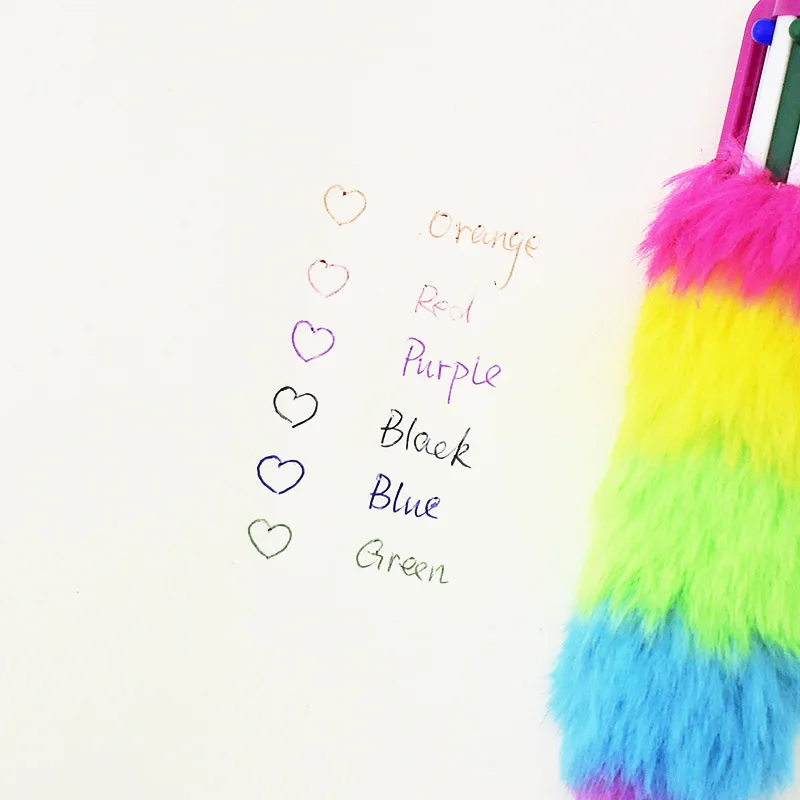 Orange
Red
Purple
Black
Blue
Green